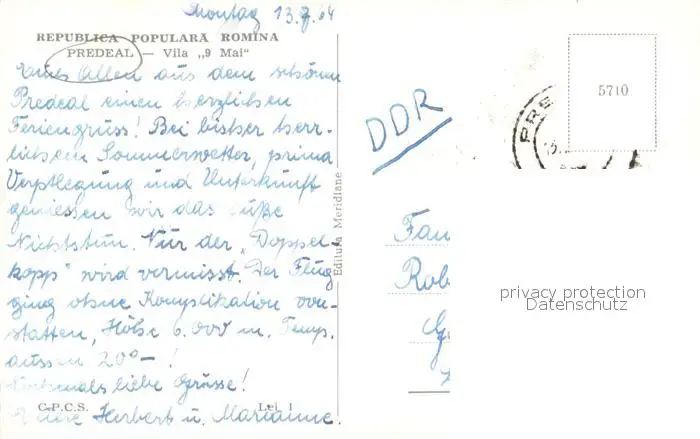 Montag 13.7.64
REPUBLICA POPULARĂ ROMÎNA
PREDEAL — Vila „9 Mai"
Allen aus dem schönen
Predeal einen herzlichen
Feriengruss! Bei bisher herr-
lichem Sommerwetter, prima
Verpflegung und Unterkunft
geniessen wir das süße
Nichtstun. Nur der „Doppel-
kopp" wird vermisst. Der Flug
ging ohne Komplikation von-
statten, Höhe 6.000 m. Temp.
aussen 20° – !
Nochmals liebe Grüsse!
Herbert u. Marianne.
C.P.C.S. Lei 1
Editura Meridiane
DDR
PRE
5710
Fam
Rob
privacy protection
Datenschutz